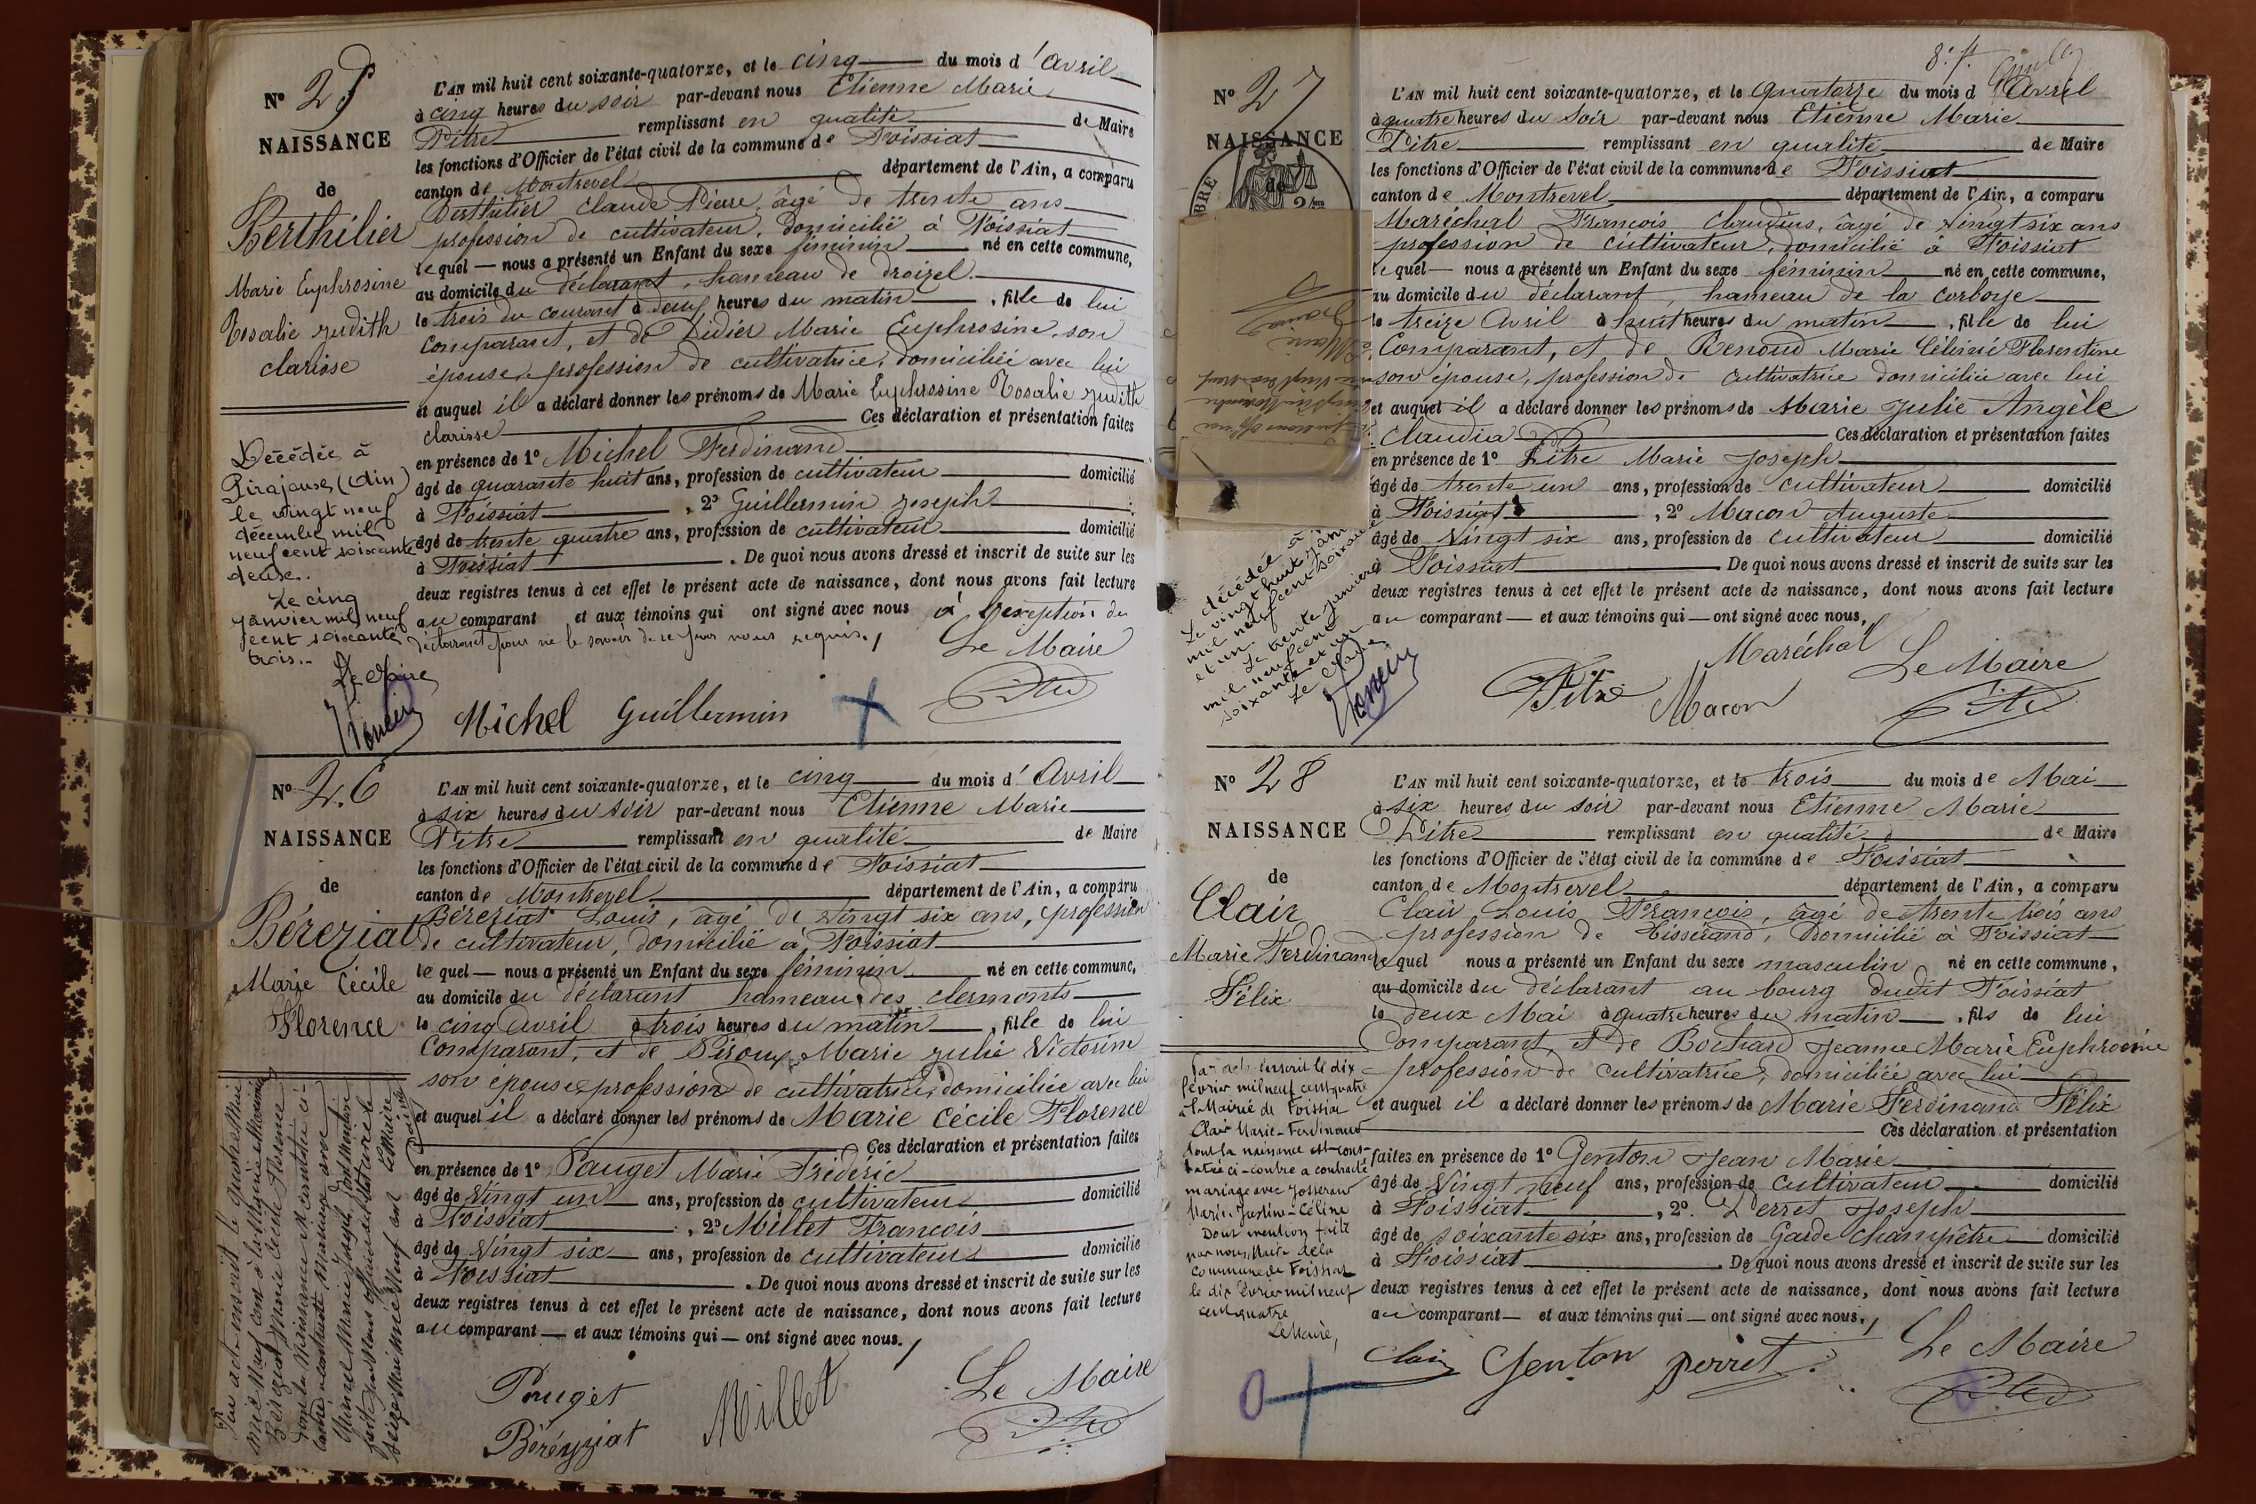 N° 25
NAISSANCE
de
Berthilier
Marie Euphrosine
Rosalie Judith
clarisse
Décédée à
Pirajoux (Ain)
le vingt neuf
décembre mil
neuf cent soixante
deux.
Le cinq
janvier mil neuf
cent soixante
trois..
Le Maire
L'AN mil huit cent soixante-quatorze, et le cinq du mois d'Avril
à cinq heures du soir par-devant nous Etienne Marie
Pitre remplissant en qualité de Maire
les fonctions d'Officier de l'état civil de la commune de Foissiat
canton de Montrevel département de l'Ain, a comparu
Berthilier Claude Pierre, âgé de trente ans
profession de cultivateur, domicilié à Foissiat
lequel — nous a présenté un Enfant du sexe féminin né en cette commune,
au domicile du déclarant, hameau de
le trois du courant à deux heures du matin, fille de lui
comparant, et de Didier Marie Euphrosine, son
épouse, profession de cultivatrice, domiciliée avec lui
et auquel il a déclaré donner les prénoms de Marie Euphrosine Rosalie Judith
clarisse Ces déclaration et présentation faites
en présence de 1° Michel Ferdinand
âgé de quarante huit ans, profession de cultivateur domicilié
à Foissiat, 2° Guillermin Joseph
âgé de trente quatre ans, profession de cultivateur domicilié
à Foissiat. De quoi nous avons dressé et inscrit de suite sur les
deux registres tenus à cet effet le présent acte de naissance, dont nous avons fait lecture
au comparant et aux témoins qui ont signé avec nous à l'exception du
déclarant pour ne le savoir de ce faire nous requis./
Le Maire
Pitre
Michel Guillermin
N° 26
NAISSANCE
de
Béréziat
Marie Cécile
Florence
Par act inscrit le quatre Mai
mil neuf cent à la Mairie de
Béréziat Marie Cécile Florence
dont la naissance est constatée ci-
contre a contracté Mariage avec
Marie Joseph
L'AN mil huit cent soixante-quatorze, et le cinq du mois d'Avril
à six heures du soir par-devant nous Etienne Marie
Pitre remplissant en qualité de Maire
les fonctions d'Officier de l'état civil de la commune de Foissiat
canton de Montrevel département de l'Ain, a comparu
Béréziat Louis, âgé de vingt six ans, profession
de cultivateur, domicilié à Foissiat
lequel — nous a présenté un Enfant du sexe féminin né en cette commune,
au domicile du déclarant hameau des clermonts
le cinq Avril à trois heures du matin, fille de lui
comparant, et de Piroux Marie Julie Victorine
son épouse profession de cultivatrice, domiciliée avec lui
et auquel il a déclaré donner les prénoms de Marie Cécile Florence
Ces déclaration et présentation faites
en présence de 1° Pauget Marie Frédéric
âgé de vingt un ans, profession de cultivateur domicilié
à Foissiat, 2° Millet François
âgé de vingt six ans, profession de cultivateur domicilié
à Foissiat. De quoi nous avons dressé et inscrit de suite sur les
deux registres tenus à cet effet le présent acte de naissance, dont nous avons fait lecture
au comparant — et aux témoins qui — ont signé avec nous./
Pauget Millet Le Maire
Béréyziat Pitre
8. f.
N° 27
NAISSANCE
de
décédée à
Le vingt huit janv
mil neuf cent soixante
et un. Le trente janvier
mil neuf cent
soixante et un
Le Maire
L'AN mil huit cent soixante-quatorze, et le quatorze du mois d'Avril
à quatre heures du soir par-devant nous Etienne Marie
Pitre remplissant en qualité de Maire
les fonctions d'Officier de l'état civil de la commune de Foissiat
canton de Montrevel département de l'Ain, a comparu
Maréchal François Claudius, âgé de vingt six ans
profession de cultivateur, domicilié à Foissiat
lequel — nous a présenté un Enfant du sexe féminin né en cette commune,
au domicile du déclarant, hameau de la
le treize Avril à huit heures du matin, fille de lui
Comparant, et de Renoud Marie Florentine
son épouse, profession de cultivatrice domiciliée avec lui
et auquel il a déclaré donner les prénoms de Marie Julie Angèle
Claudia Ces déclaration et présentation faites
en présence de 1° Pitre Marie Joseph
âgé de trente un ans, profession de cultivateur domicilié
à Foissiat, 2° Macon Auguste
âgé de vingt six ans, profession de cultivateur domicilié
à Foissiat De quoi nous avons dressé et inscrit de suite sur les
deux registres tenus à cet effet le présent acte de naissance, dont nous avons fait lecture
au comparant — et aux témoins qui — ont signé avec nous./
Maréchal Le Maire
Pitre Macon Pitre
N° 28
NAISSANCE
de
Clair
Marie Ferdinand
Félix
Par acte inscrit le dix
février mil neuf cent quatre
à la Mairie de Foissiat
Clair Marie-Ferdinand
dont la naissance est cons-
tatée ci-contre a contracté
mariage avec Josserand
Marie-Justine-Céline
Dont mention faite
par nous Maire de la
commune de Foissiat
le dix février mil neuf
cent quatre
Le Maire,
L'AN mil huit cent soixante-quatorze, et le trois du mois de Mai
à six heures du soir par-devant nous Etienne Marie
Pitre remplissant en qualité de Maire
les fonctions d'Officier de l'état civil de la commune de Foissiat
canton de Montrevel département de l'Ain, a comparu
Clair Louis François, âgé de trente trois ans
profession de Tisserand, domicilié à Foissiat
lequel nous a présenté un Enfant du sexe masculin né en cette commune,
au domicile du déclarant au bourg dudit Foissiat
le deux Mai à quatre heures du matin, fils de lui
Comparant, et de Bochard Jeanne Marie Euphrosine
profession de cultivatrice, domiciliée avec lui
et auquel il a déclaré donner les prénoms de Marie Ferdinand Félix
Ces déclaration et présentation
faites en présence de 1° Genton Jean Marie
âgé de vingt neuf ans, profession de cultivateur domicilié
à Foissiat, 2° Perret Joseph
âgé de soixante six ans, profession de Garde champêtre domicilié
à Foissiat. De quoi nous avons dressé et inscrit de suite sur les
deux registres tenus à cet effet le présent acte de naissance, dont nous avons fait lecture
au comparant — et aux témoins qui — ont signé avec nous./
Clair Genton perret Le Maire
Pitre